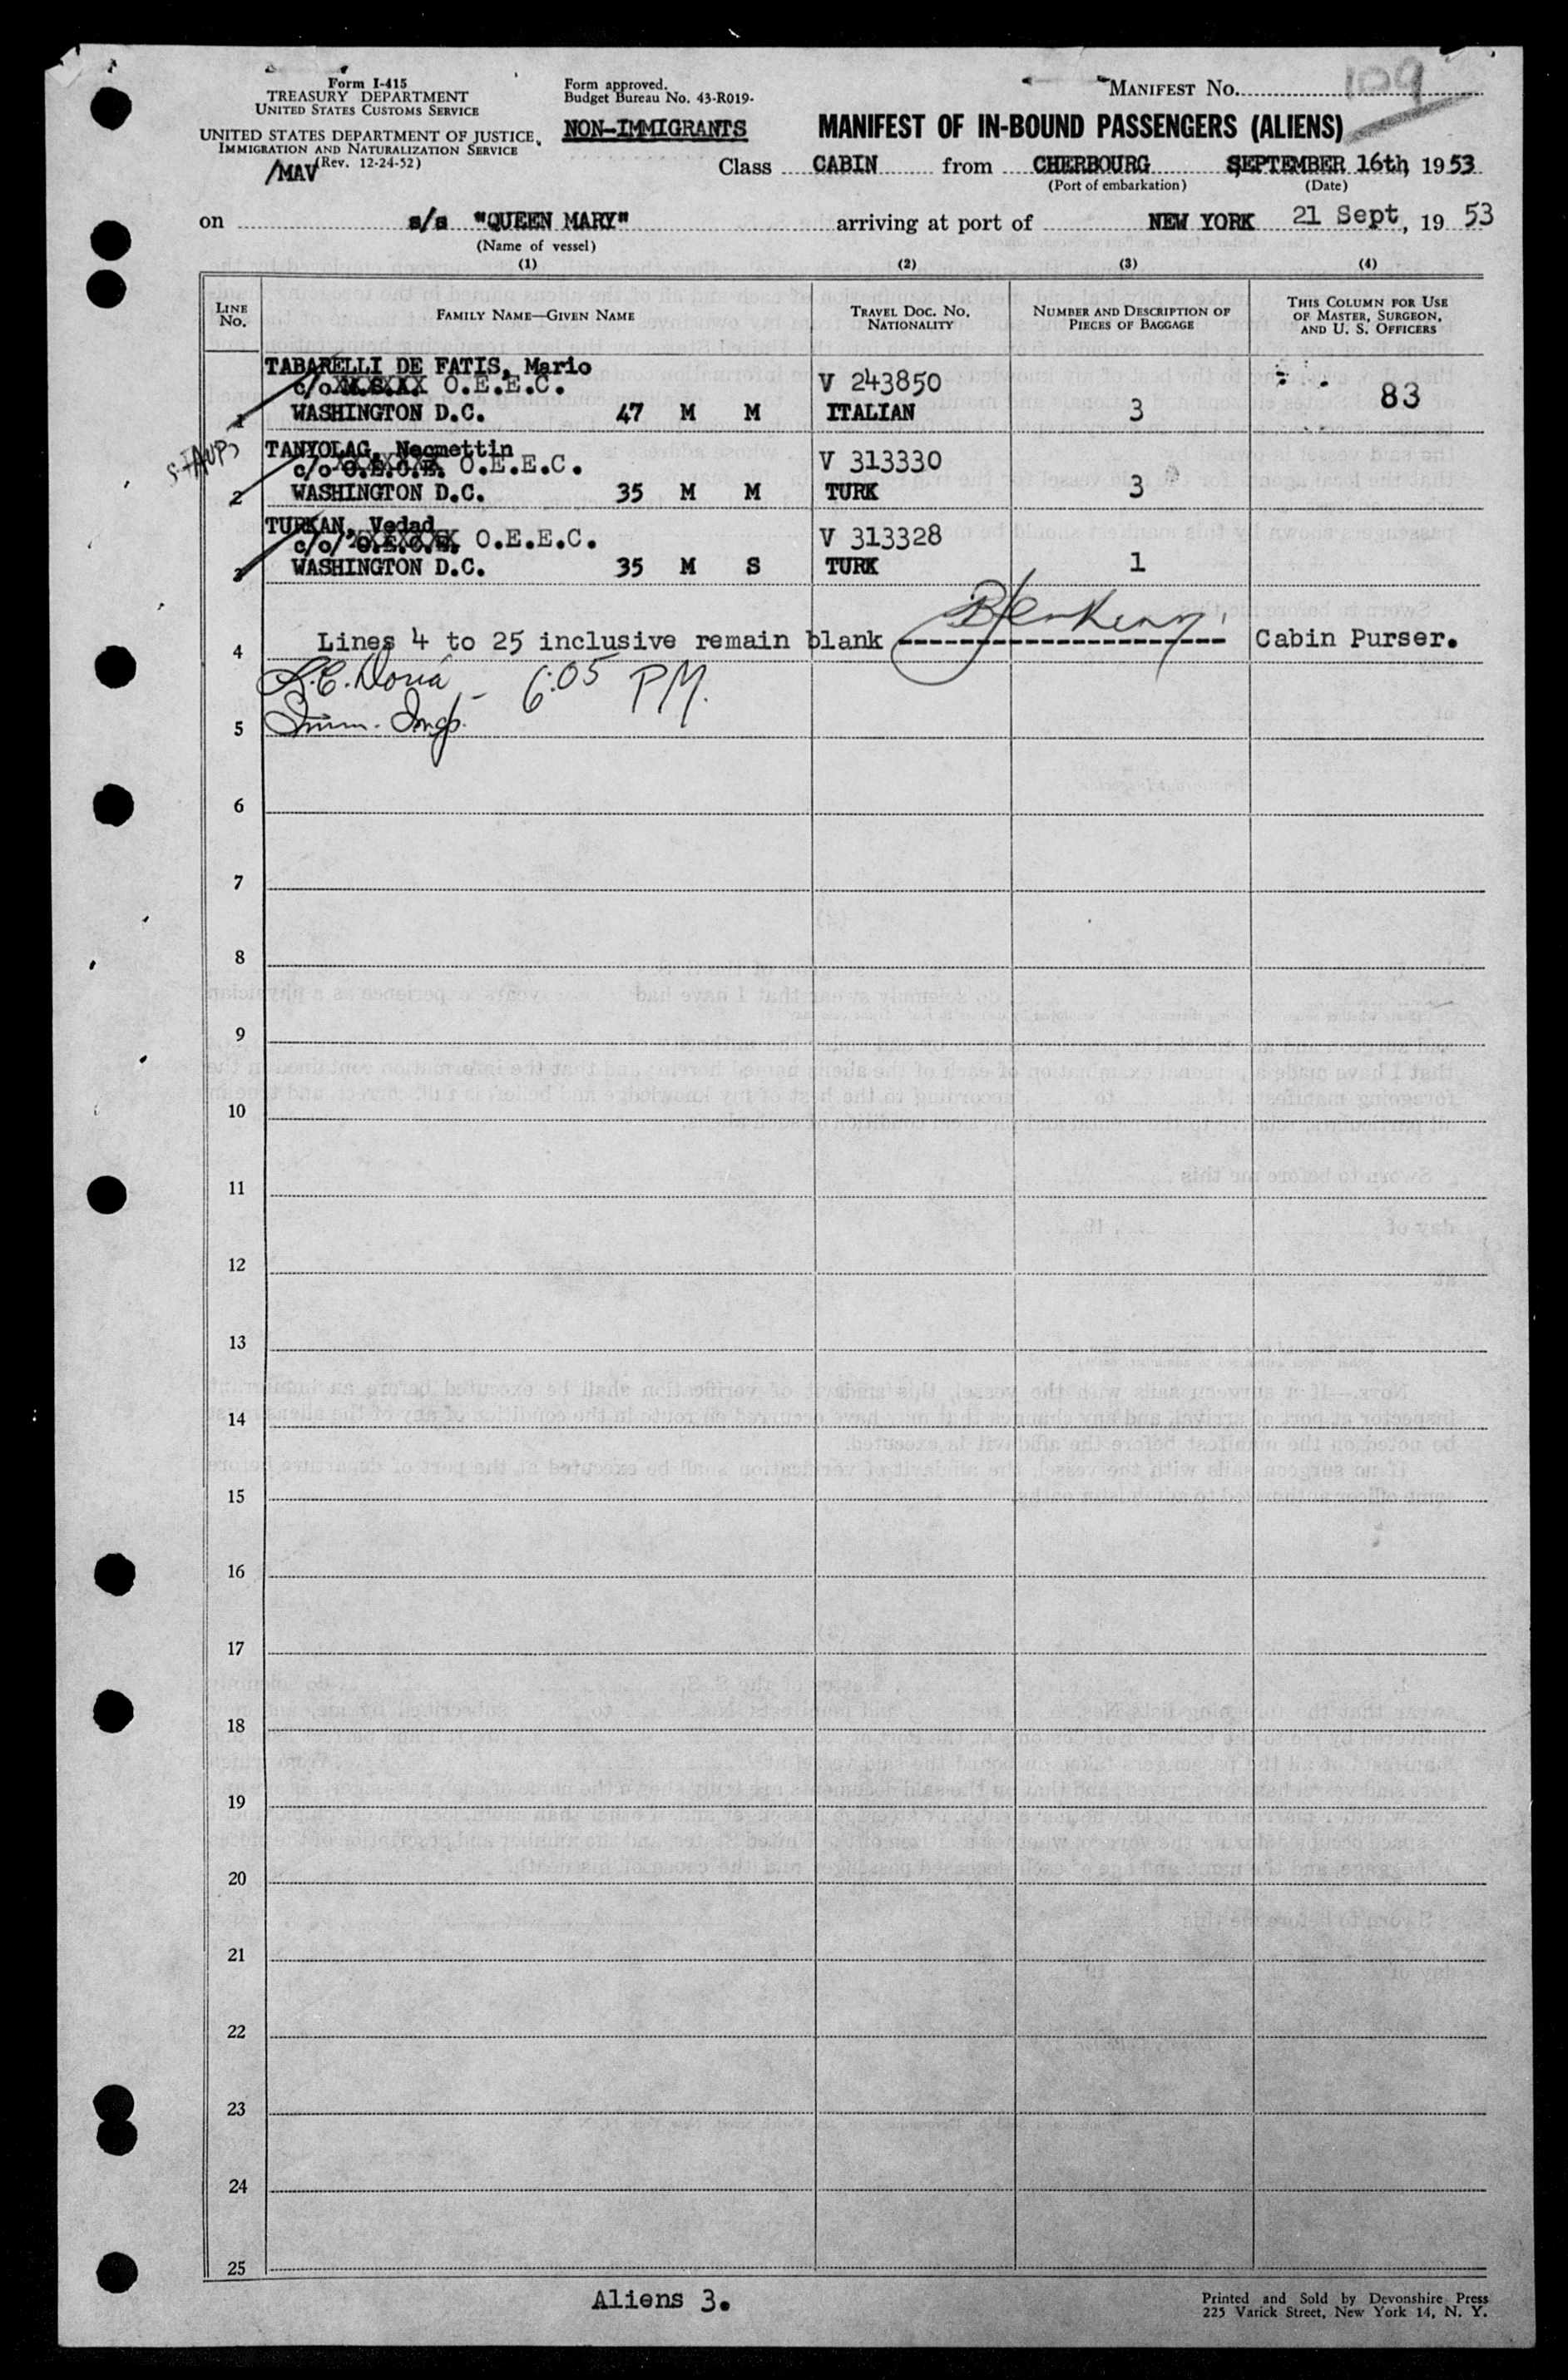 Form I-415
TREASURY DEPARTMENT
UNITED STATES CUSTOMS SERVICE
UNITED STATES DEPARTMENT OF JUSTICE,
IMMIGRATION AND NATURALIZATION SERVICE
(Rev. 12-24-52)
/MAV
Form approved.
Budget Bureau No. 43-R019-
NON-IMMIGRANTS
MANIFEST NO. 109
MANIFEST OF IN-BOUND PASSENGERS (ALIENS)
Class CABIN from CHERBOURG SEPTEMBER 16th, 1953
(Port of embarkation) (Date)
on s/s "QUEEN MARY" arriving at port of NEW YORK 21 Sept, 19 53
(Name of vessel)
(1) (2) (3) (4)
LINE NO.
FAMILY NAME—GIVEN NAME
TRAVEL DOC. NO. NATIONALITY
NUMBER AND DESCRIPTION OF PIECES OF BAGGAGE
THIS COLUMN FOR USE OF MASTER, SURGEON, AND U. S. OFFICERS
TABARELLI DE FATIS, Mario
c/o O.E.E.C. V 243850 83
1 WASHINGTON D.C. 47 M M ITALIAN 3
TANYOLAG, Necmettin
c/o O.E.E.C. V 313330
2 WASHINGTON D.C. 35 M M TURK 3
TURKAN, Vedad
c/o O.E.E.C. V 313328
3 WASHINGTON D.C. 35 M S TURK 1
4 Lines 4 to 25 inclusive remain blank Cabin Purser.
6:05 PM.
5 Imm. Insp.
6
7
8
9
10
11
12
13
14
15
16
17
18
19
20
21
22
23
24
25
Aliens 3.
Printed and Sold by Devonshire Press
225 Varick Street, New York 14, N. Y.